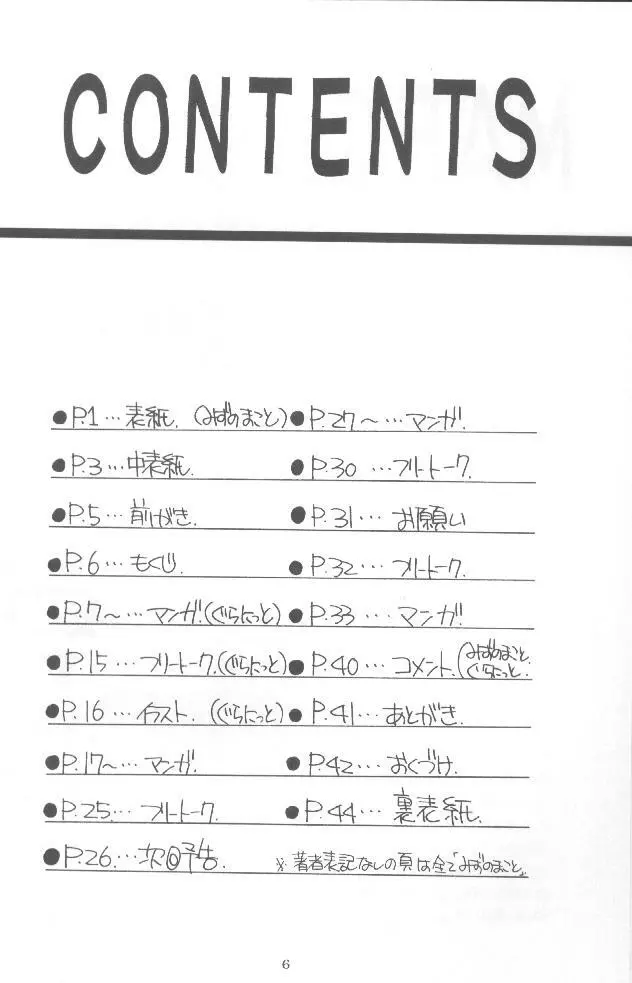 CONTENTS
●P.1…表紙.(みずのまこと)
●P.3…中表紙.
●P.5…前がき.
●P.6…もくじ.
●P.7~…マンガ.(ぐらにっと)
●P.15…フリートーク.(ぐらにっと)
●P.16…イラスト.(ぐらにっと)
●P.17~…マンガ.
●P.25…フリートーク.
●P.26…次回予告.
●P.27~…マンガ.
●P.30…フリートーク.
●P.31…お願い
●P.32…フリートーク.
●P.33…マンガ.
●P.40…コメント.(みずのまこと.ぐらにっと.
●P.41…あとがき.
●P.42…おくづけ.
●P.44…裏表紙.
※著者表記なしの頁は全て「みずのまこと」
6